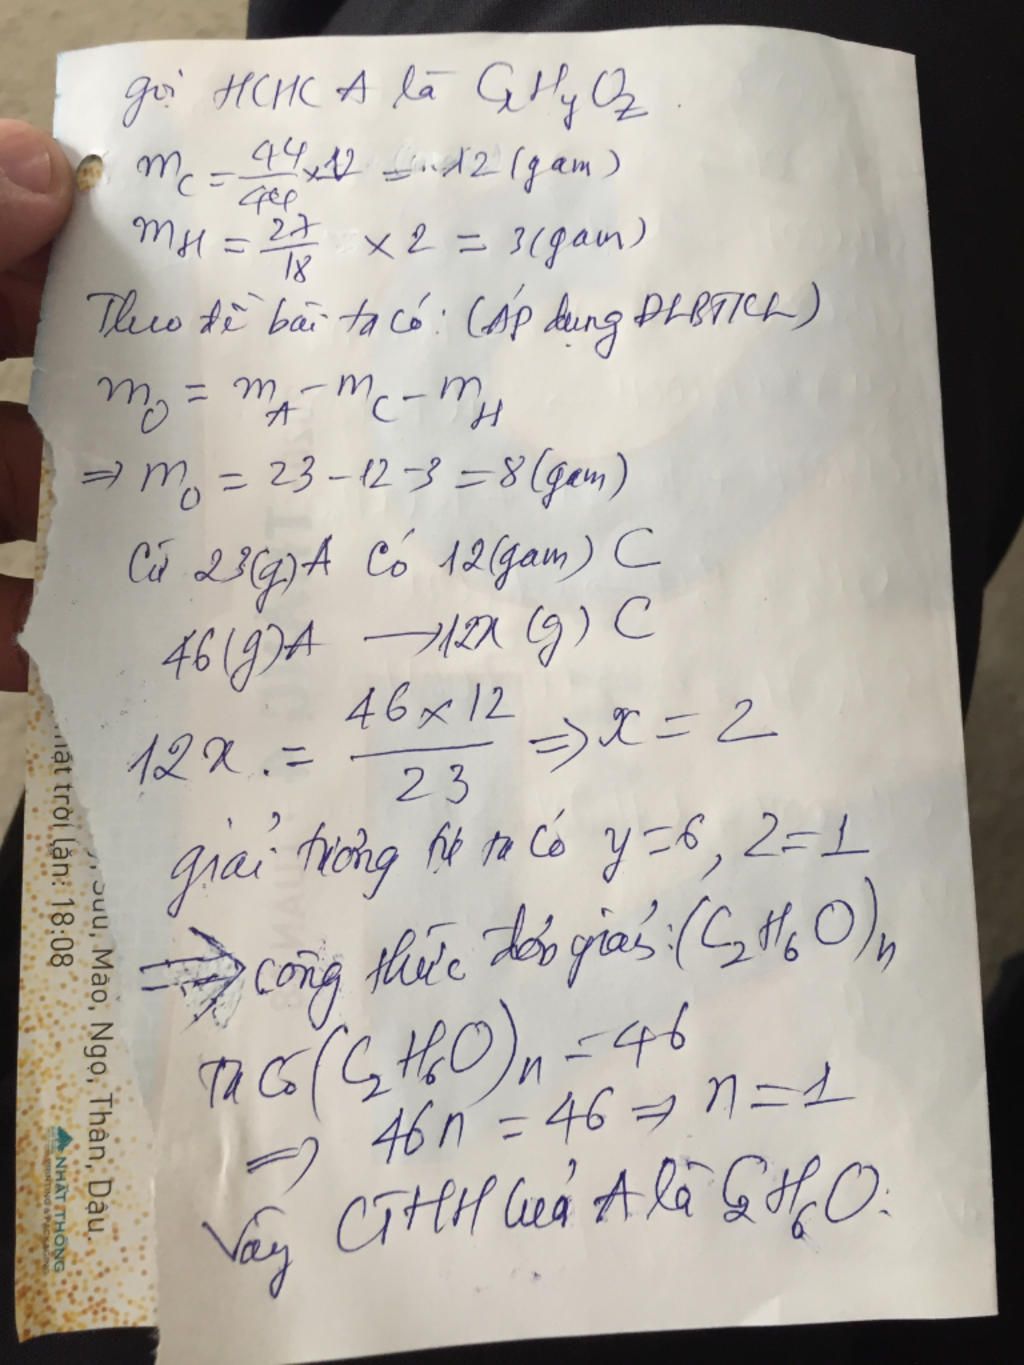 gọi HCHC A là CxHyOz.
mC = 44/44 x 12 = 12 (gam)
mH = 27/18 x 2 = 3(gam)
Theo đề bài ta có: (ÁP dụng ĐLBTKL)
mO = mA - mC - mH
=> mO = 23 - 12 - 3 = 8 (gam)
Cứ 23(g)A có 12(gam) C
46(g)A → 12x (g) C
12x . = 46 x 12 / 23 => x = 2
giải tương tự ta có y = 6, z = 1
=> công thức đơn giản: (C2H6O)n
Ta có (C2H6O)n = 46
=> 46n = 46 => n = 1
Vậy CTHH của A là C2H6O.
mặt trời lặn: 18:08
Sửu, Mão, Ngọ, Thân, Dậu.
NHẤT THỐNG